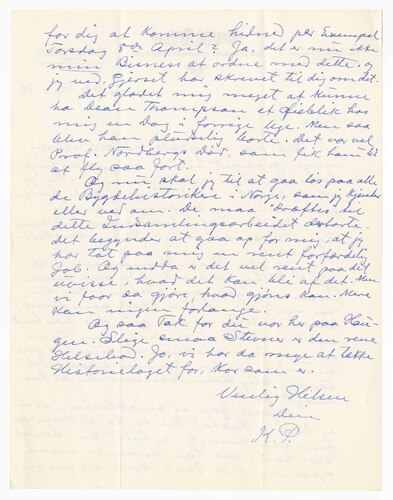 for dig at komme hidned per Exempel
Torsdag 5te April? Ja, det er nu ikke
min Bisness at ordne med dette, og
jeg ved, Gjerset har skrevet til dig om det.
Det glædet mig meget at kunne
ha Dean Thompson et Øieblik hos
mig en Dag i forrige Uge. Men saa
blev han pludselig borte. Det var vel
Prof. Nordbergs Død, som fik ham til
at fly saa fort.
Og nu skal jeg til at gaa løs paa alle
de Bygdehistoriker i Norge, som jeg kjender
eller ved om. De maa til
dette Indsamlingsarbeidet derborte.
Det begynder at gaa op for mig, at jeg
har tat paa mig en rent forfærdelig
Job. Og endda er det vel rent paa det
uvisse, hvad det kan bli af det. Men
vi faar da gjøre, hvad gjøres kan. Mere
kan ingen forlange.
Og saa Tak for du var her paa Hau-
gen. Slige smaa Stevner er den rene
Helsebod. Jo, vi har da meget at takke
Historielaget for, kor som er.
Venlig Hilsen
Din
K. P.